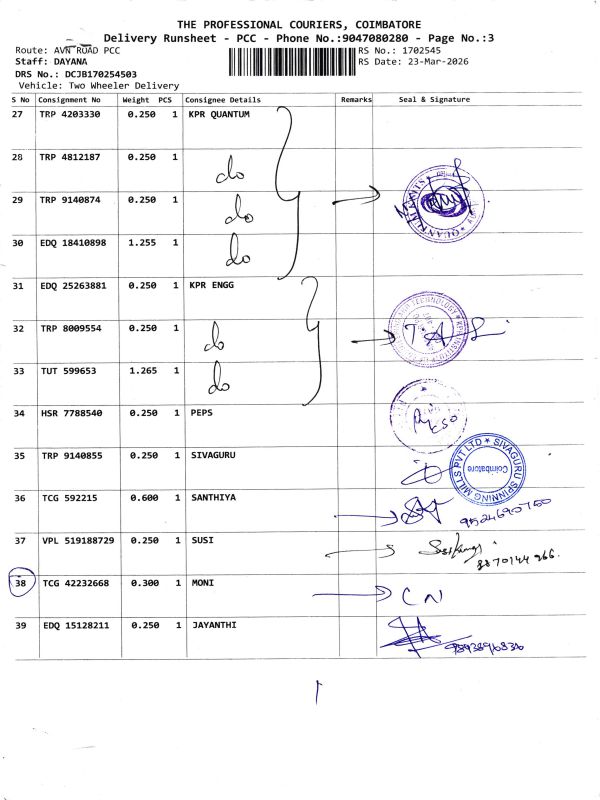 THE PROFESSIONAL COURIERS, COIMBATORE
Delivery Runsheet - PCC - Phone No.:9047080280 - Page No.:3
Route: AVN ROAD PCC
RS No.: 1702545
Staff: DAYANA
RS Date: 23-Mar-2026
DRS No.: DCJB170254503
Vehicle: Two Wheeler Delivery
S No Consignment No Weight PCS Consignee Details Remarks Seal & Signature
27 TRP 4203330 0.250 1 KPR QUANTUM
28 TRP 4812187 0.250 1 do
29 TRP 9140874 0.250 1 do
30 EDQ 18410898 1.255 1 do
31 EDQ 25263881 0.250 1 KPR ENGG
32 TRP 8009554 0.250 1 do
33 TUT 599653 1.265 1 do
34 HSR 7788540 0.250 1 PEPS
35 TRP 9140855 0.250 1 SIVAGURU
SIVAGURU SPINNING MILLS PVT LTD
Coimbatore
36 TCG 592215 0.600 1 SANTHIYA
9524690750
37 VPL 519188729 0.250 1 SUSI
8870144266.
38 TCG 42232668 0.300 1 MONI
CN
39 EDQ 15128211 0.250 1 JAYANTHI